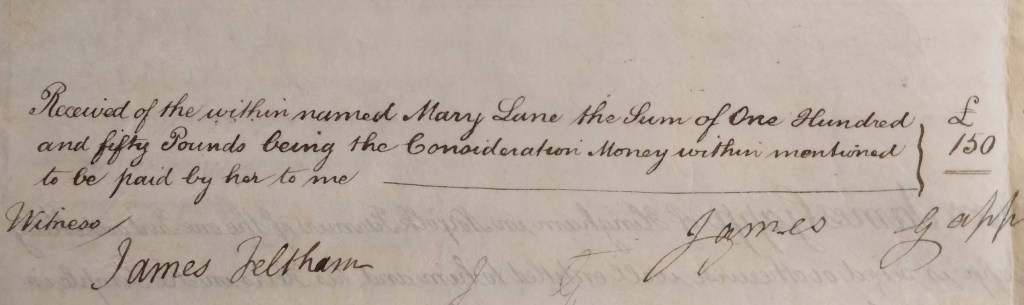 Received of the within named Mary Lane the Sum of One Hundred
and fifty Pounds being the Consideration Money within mentioned
to be paid by her to me
£
150
Witness
James Feltham
James Gapp